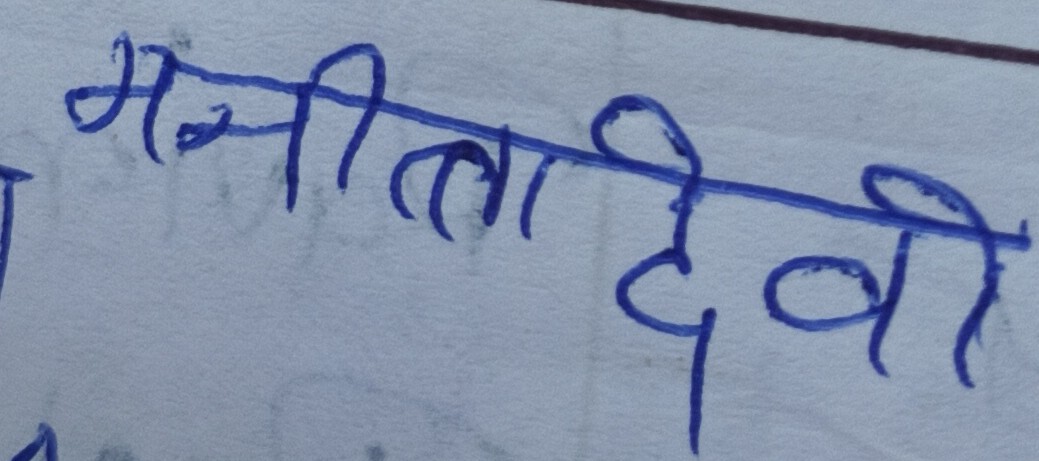 मनीता देवी